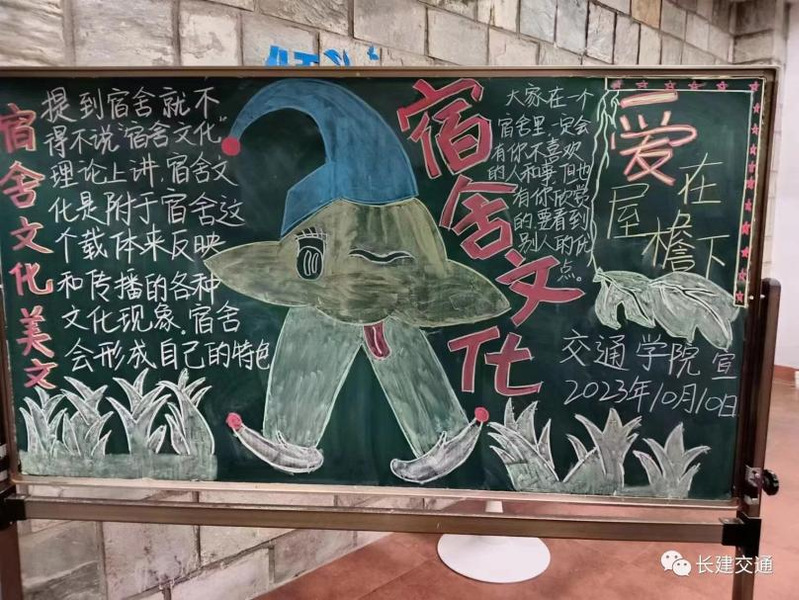 宿舍文化美文
提到宿舍就不
得不说“宿舍文化”
理论上讲,宿舍文
化是附于宿舍这
个载体来反映
和传播的各种
文化现象.宿舍
会形成自己的特色
宿舍文化
大家在一个
宿舍里,一定会
有你不喜欢
的人和事但也
有你欣赏
的.要看到
别人的优
点。
爱
在
屋檐下
交通学院 宣
2023年10月10日
长建交通